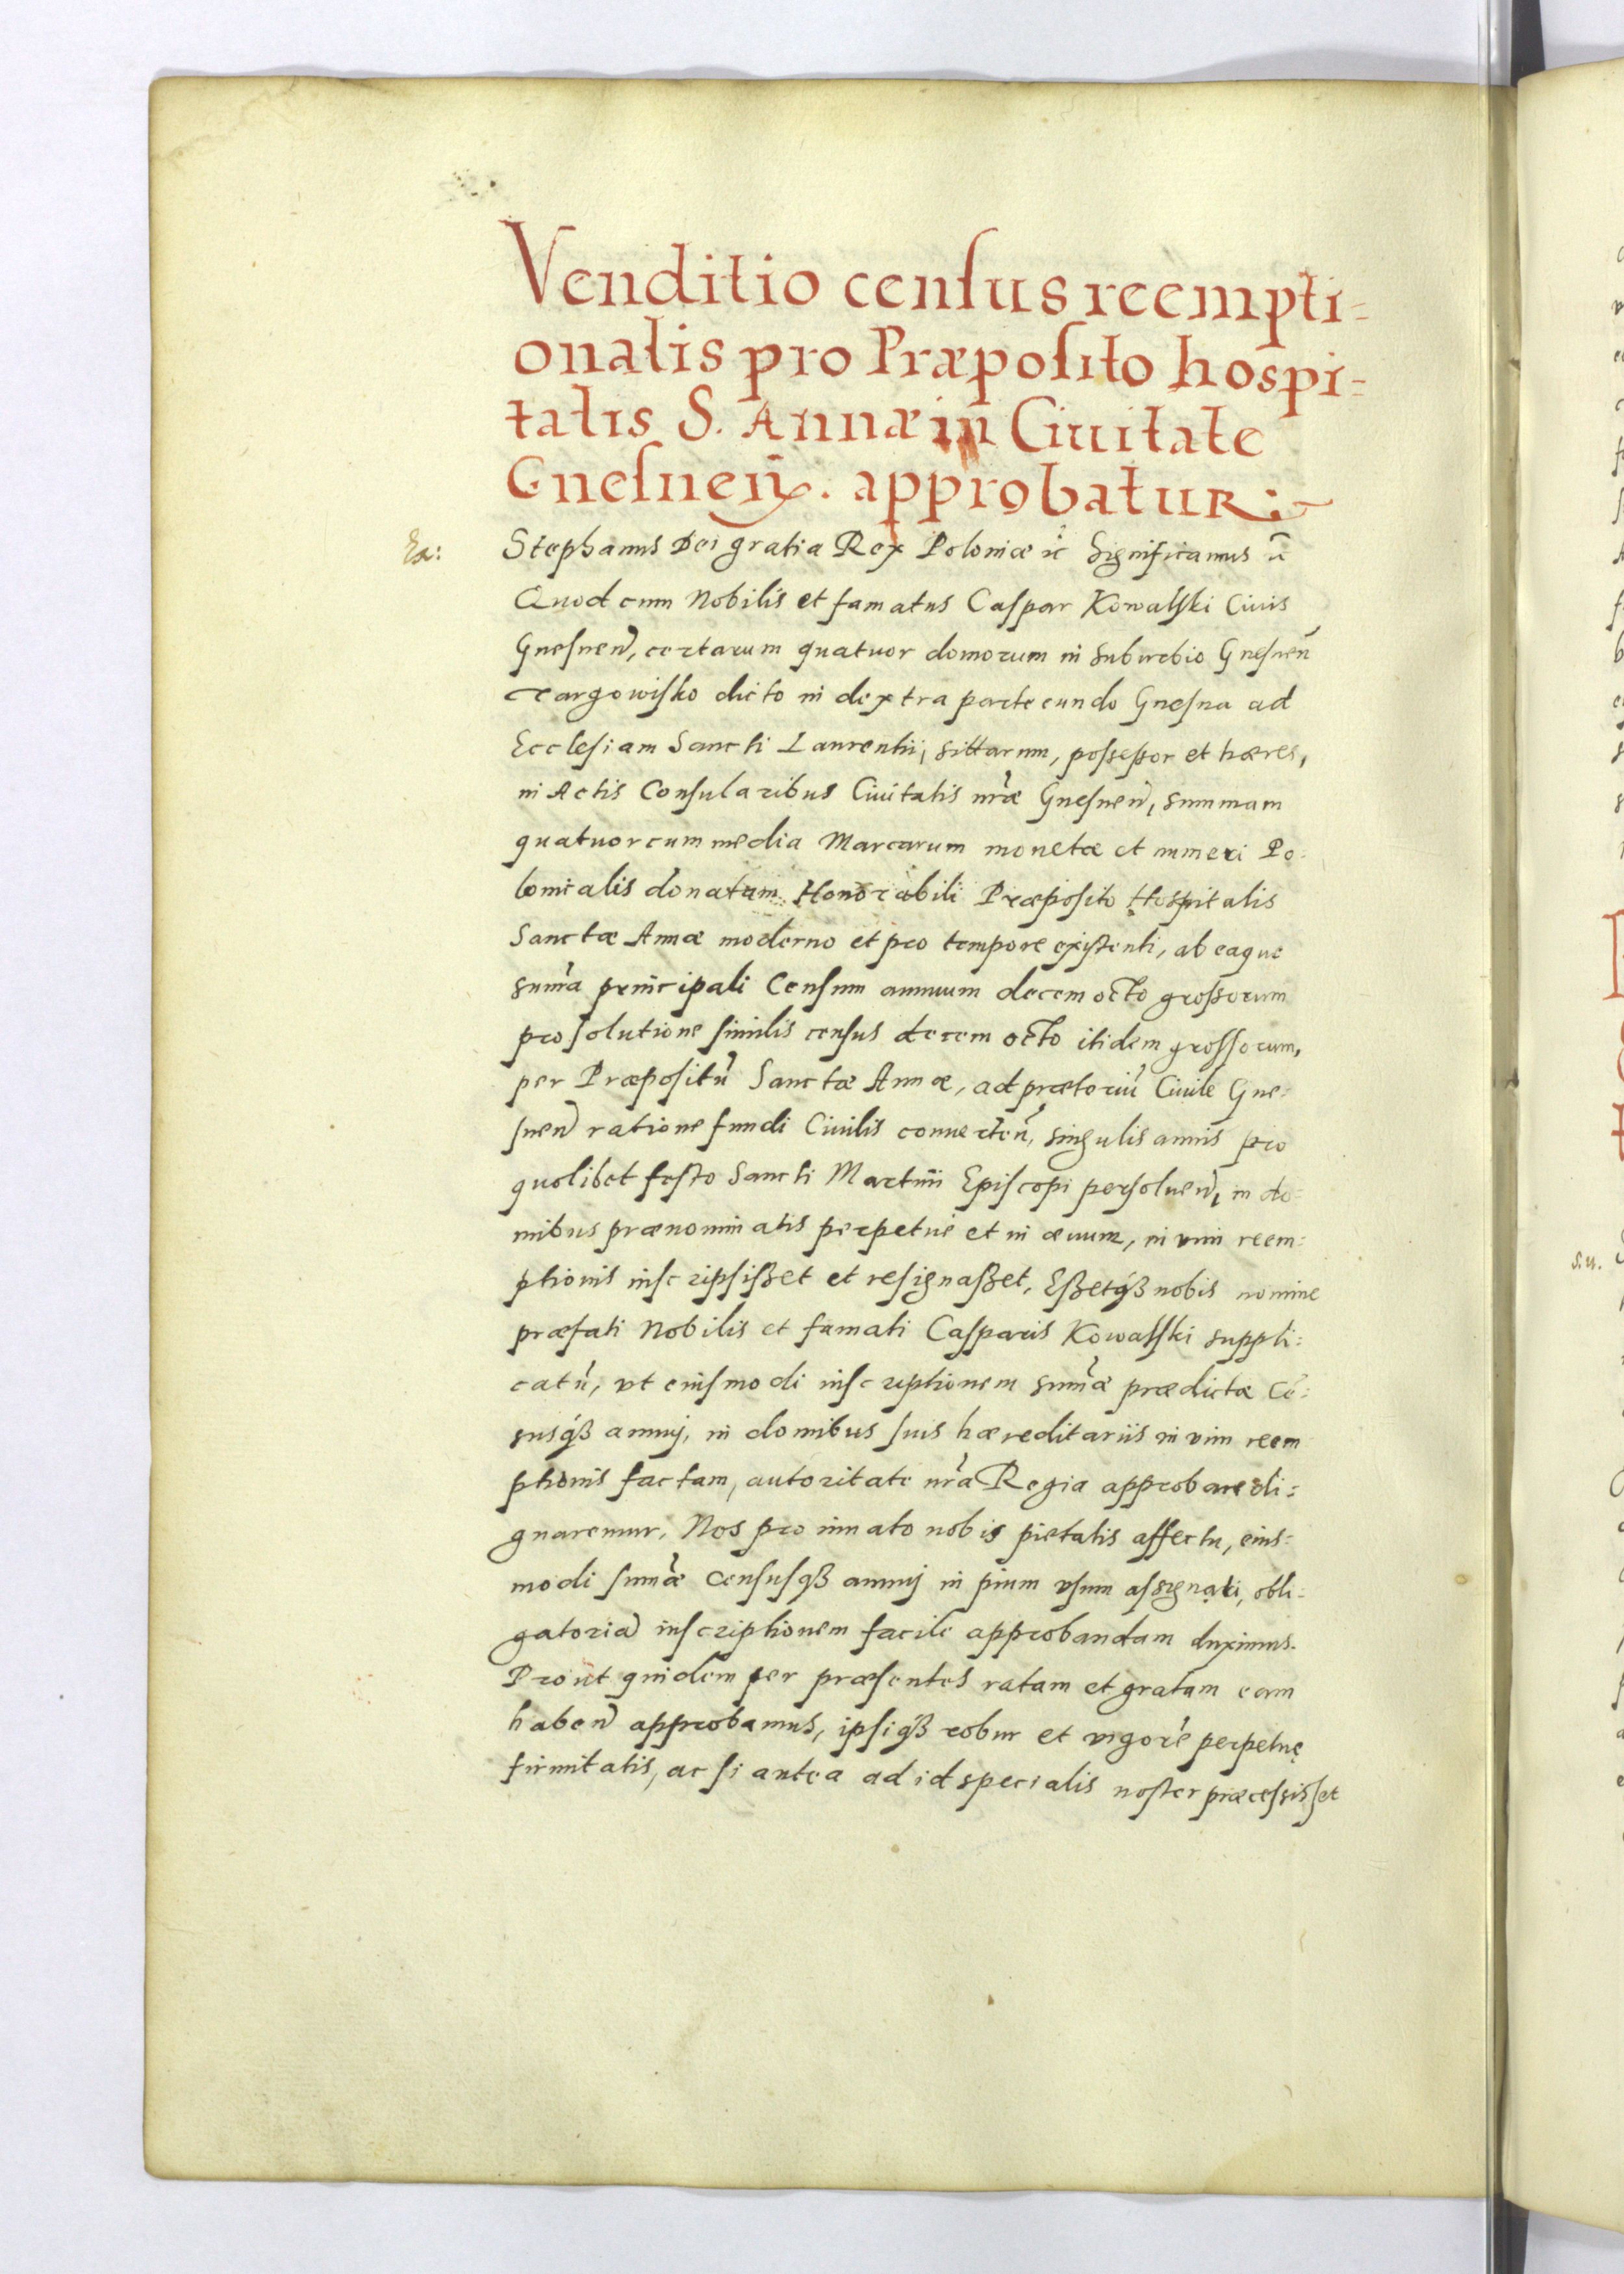 Venditio census reempti-
onalis pro Præposito hospi-
talis S. Annæ in Ciuitate
Gnesnen̄. approbatur:
Ex:
Stephanus Dei gratia Rex Poloniæ ic̄ Significamus ic̄
Quod cum Nobilis et famatus Caspar Kowalski Ciuis
Gnesnen̄, certarum quatuor domorum in suburbio Gnesnen̄
Targowisko dicto in dextra parte eundo Gnesna ad
Ecclesiam Sancti Laurentij, sittarum, possessor et hæres,
in Actis Consularibus Ciuitatis nr̄æ Gnesnen̄, summam
quatuor cum media Marcarum monetæ et numeri Po:
lonicalis donatam Honorabili Præposito Hospitalis
Sanctæ Annæ moderno et pro tempore existenti, ab eaque
sum̄a principali Censum annuum decem octo grossorum
pro solutione similis census decem octo itidem grossorum,
per Præpositū Sanctæ Annæ, ad prætoriū Ciuile Gne:
snen̄ ratione fundi Ciuilis conuerten̄, singulis annis pro
quolibet festo Sancti Martini Episcopi persoluen̄, in do:
mibus prænominatis perpetue et in æuum, in vim reem:
ptionis inscripsisset et resignasset, Essetqß nobis nomine
præfati Nobilis et famati Casparis Kowalski suppli:
catū, vt eiusmodi inscriptionem sum̄æ prædictæ Cē:
susqß annuj, in domibus suis hæreditariis in vim reem
ptionis factam, autoritate nr̄a Regia approbare di:
gnaremur, Nos pro innato nobis pietatis affectu, eius:
modi sum̄æ Censusqß annuj in pium vsum assignati, obli:
gatoriā inscriptionem facile approbandam duximus.
Prout quidem per præsentes ratam et gratam eam
haben̄ approbamus, ipsiqß robur et vigorē perpetuę
firmitatis, ac si antea ad id specialis noster præcessisset
s.u.